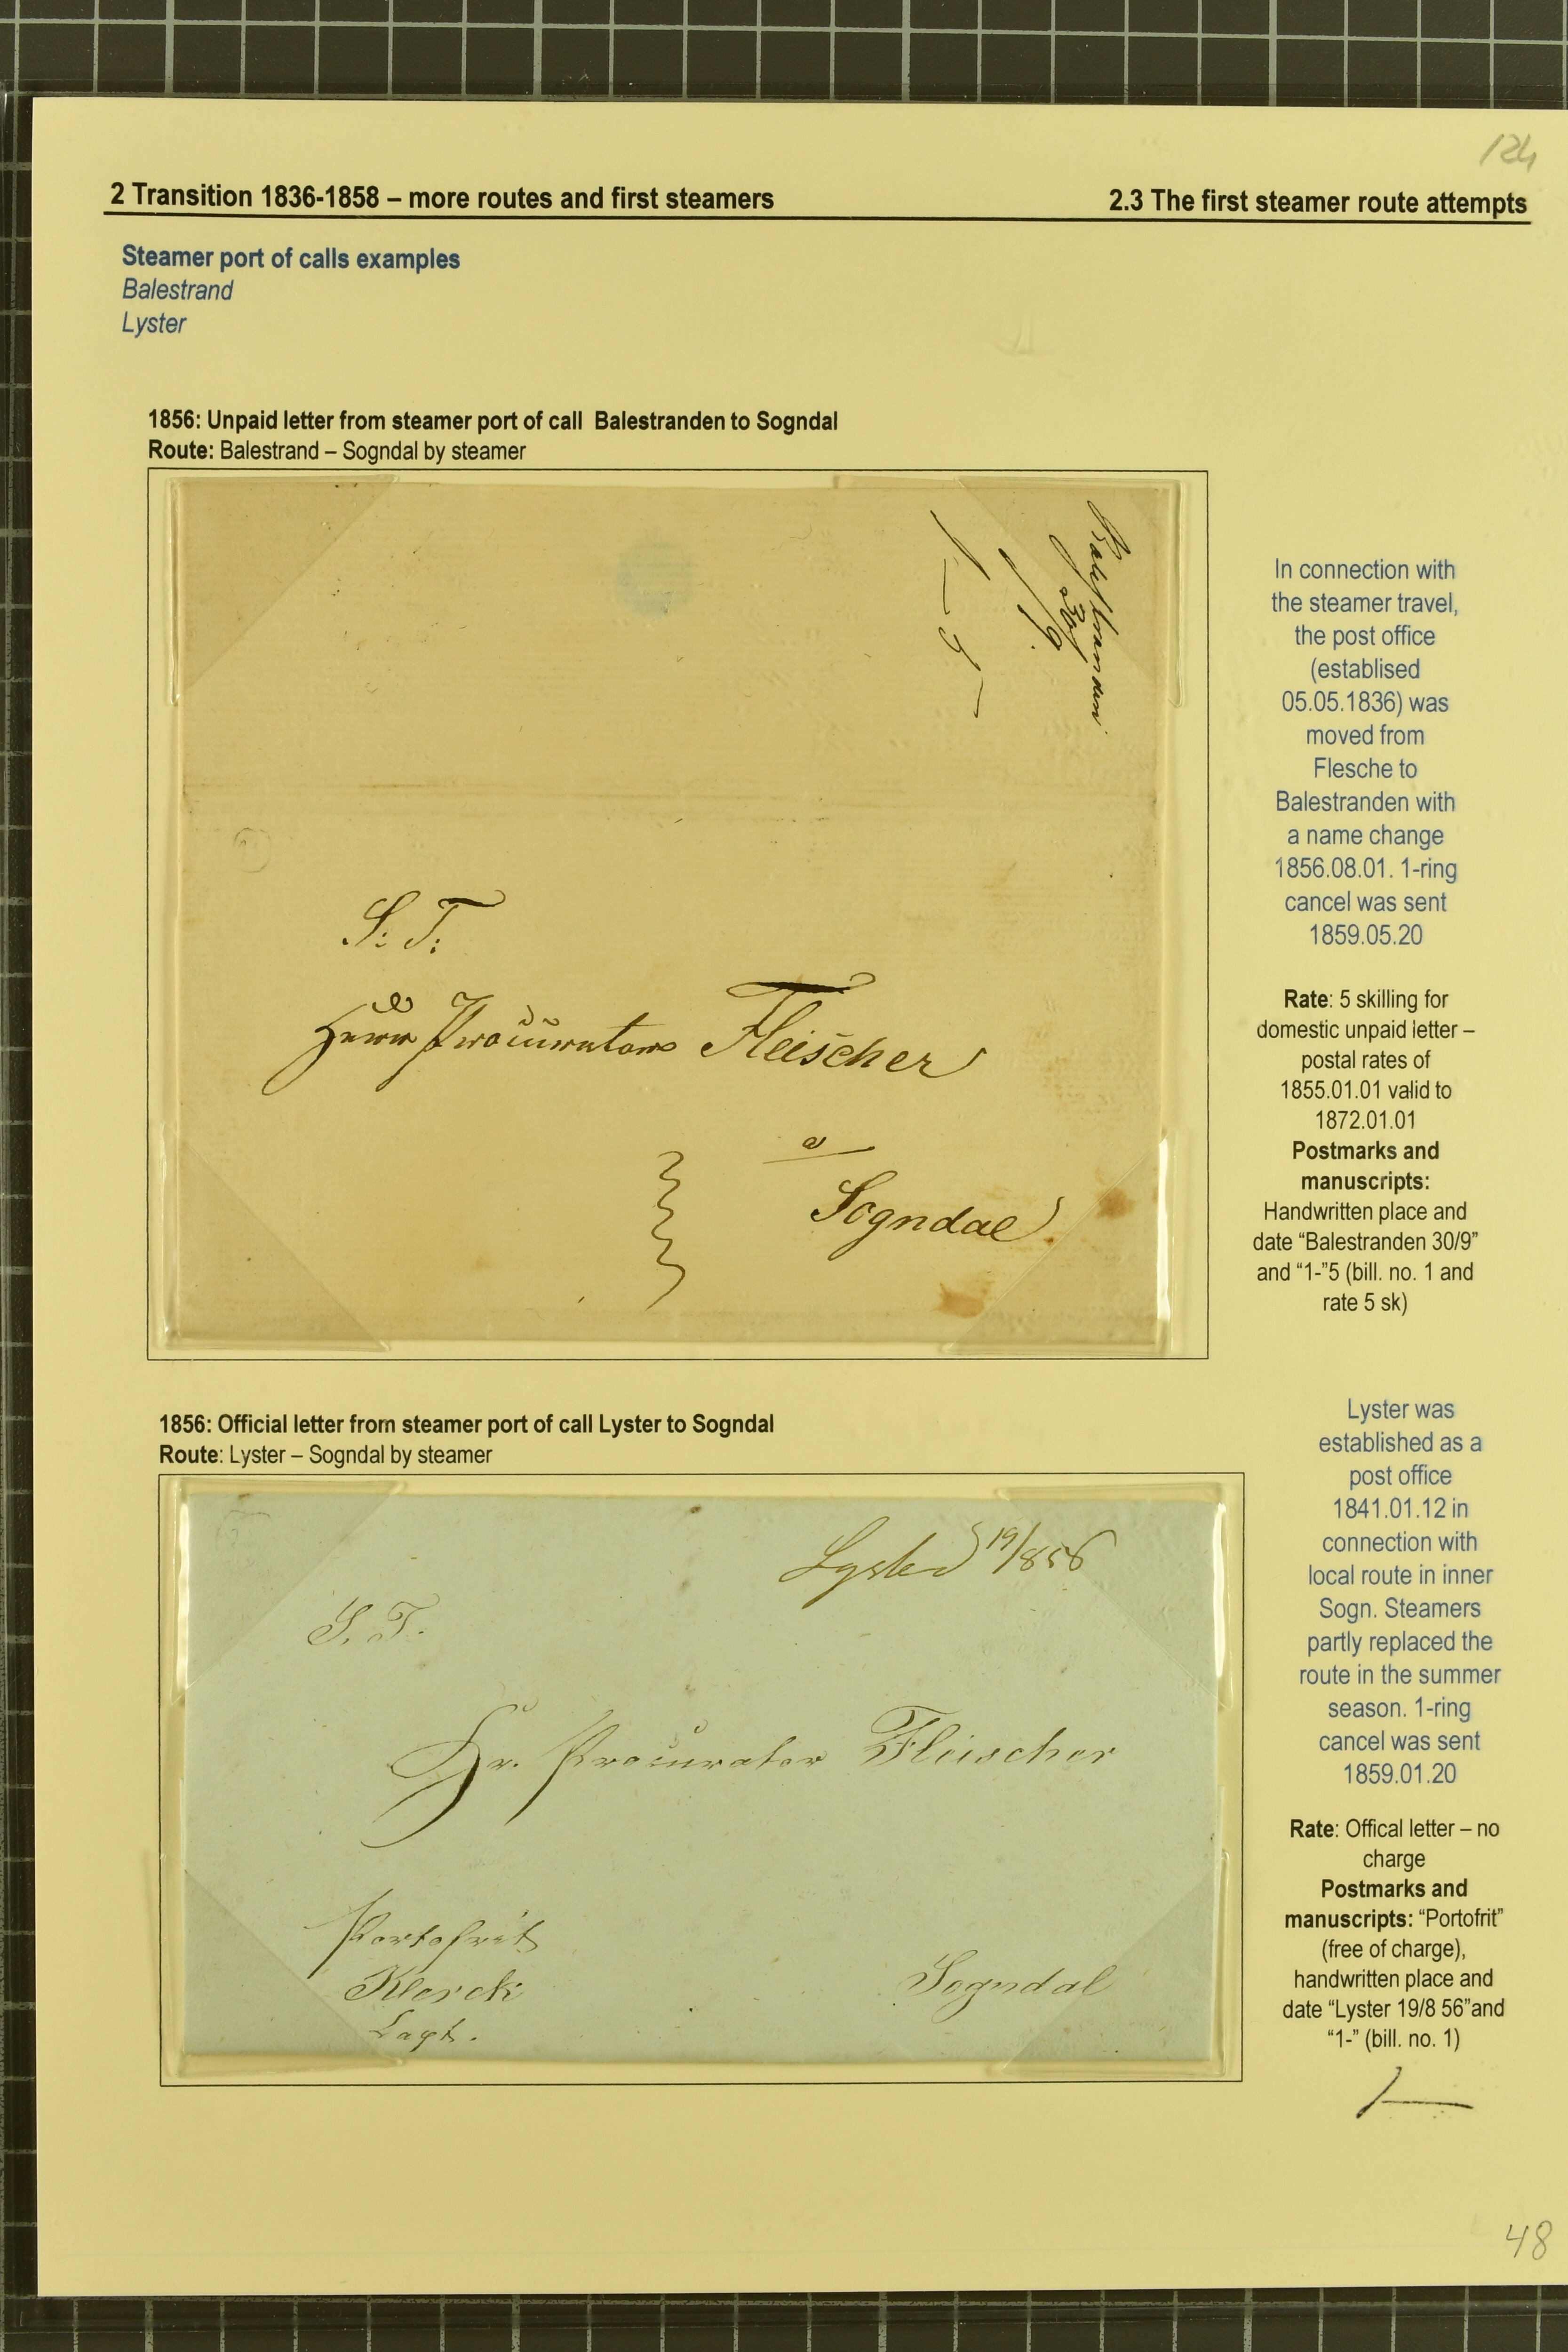 124
2 Transition 1836-1858 – more routes and first steamers
2.3 The first steamer route attempts
Steamer port of calls examples
Balestrand
Lyster
1856: Unpaid letter from steamer port of call Balestranden to Sogndal
Route: Balestrand – Sogndal by steamer
Balestranden
30/9.
1 – 5
S: T:
Herr Procurator Fleischer
a
Sogndal
In connection with
the steamer travel,
the post office
(establised
05.05.1836) was
moved from
Flesche to
Balestranden with
a name change
1856.08.01. 1-ring
cancel was sent
1859.05.20
Rate: 5 skilling for
domestic unpaid letter –
postal rates of
1855.01.01 valid to
1872.01.01
Postmarks and
manuscripts:
Handwritten place and
date “Balestranden 30/9”
and “1-”5 (bill. no. 1 and
rate 5 sk)
1856: Official letter from steamer port of call Lyster to Sogndal
Route: Lyster – Sogndal by steamer
Lyster 19/8 56
S. T.
Hr. Procurator Fleischer
Portofrit
Klerck
Sogndal
Lyster was
established as a
post office
1841.01.12 in
connection with
local route in inner
Sogn. Steamers
partly replaced the
route in the summer
season. 1-ring
cancel was sent
1859.01.20
Rate: Offical letter – no
charge
Postmarks and
manuscripts: “Portofrit”
(free of charge),
handwritten place and
date “Lyster 19/8 56”and
“1-” (bill. no. 1)
1–
48